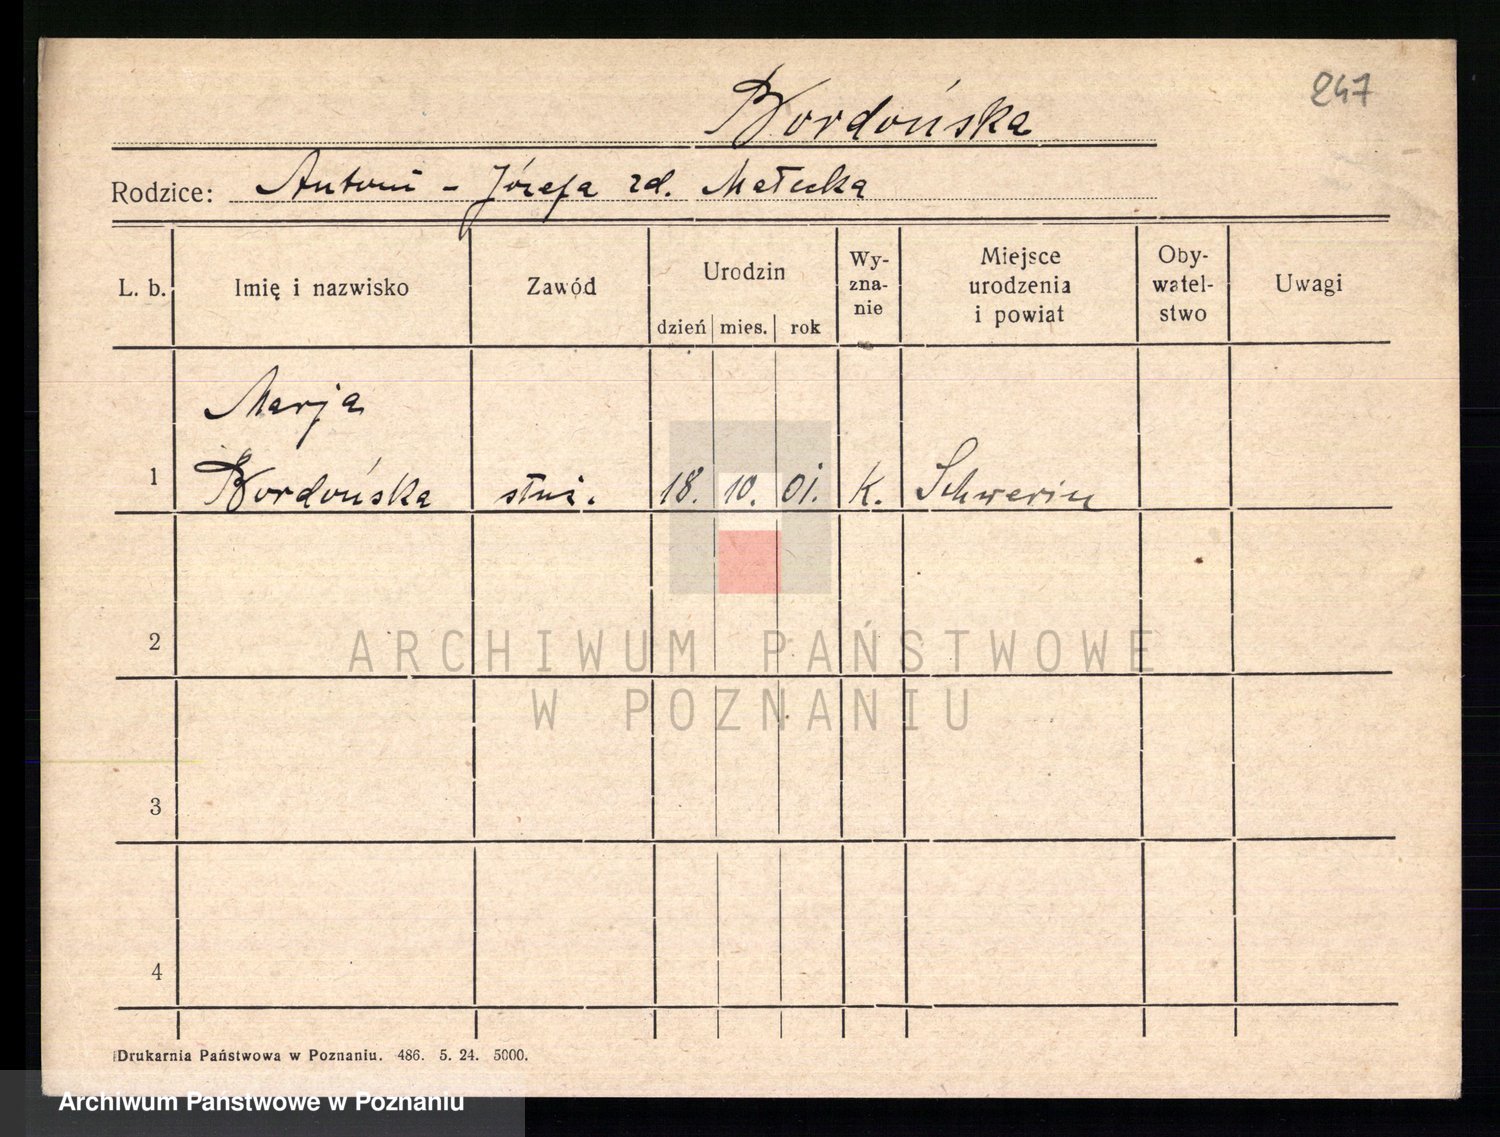 247
Bordońska
Rodzice: Antoni - Józefa zd. Małecka
L. b. Imię i nazwisko Zawód Urodzin dzień mies. rok Wy-znanie Miejsce urodzenia i powiat Oby-watel-stwo Uwagi
Marja
1 Bordońska służ. 18. 10. 01. K. Schwerin
2
ARCHIWUM PAŃSTWOWE
W POZNANIU
3
4
Drukarnia Państwowa w Poznaniu. 486. 5. 24. 5000.
Archiwum Państwowe w Poznaniu